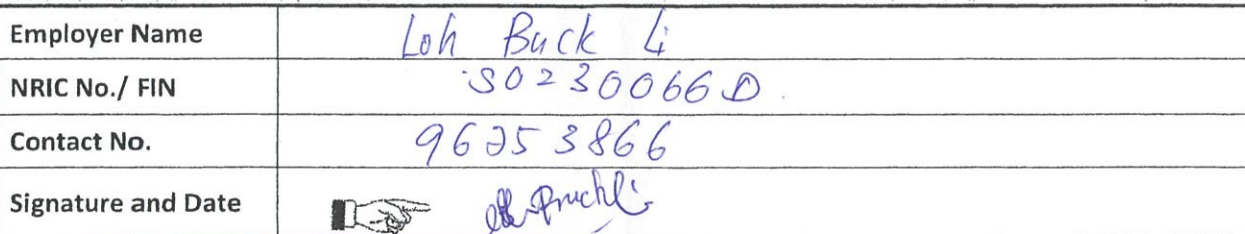 Employer Name Loh Buck Li
NRIC No./ FIN S0230066D
Contact No. 96253866
Signature and Date